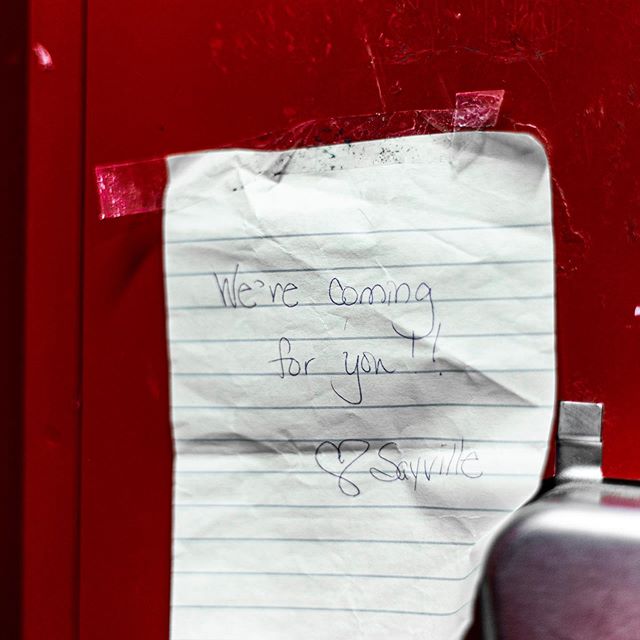 We're coming
for you!!
♡ Sayville